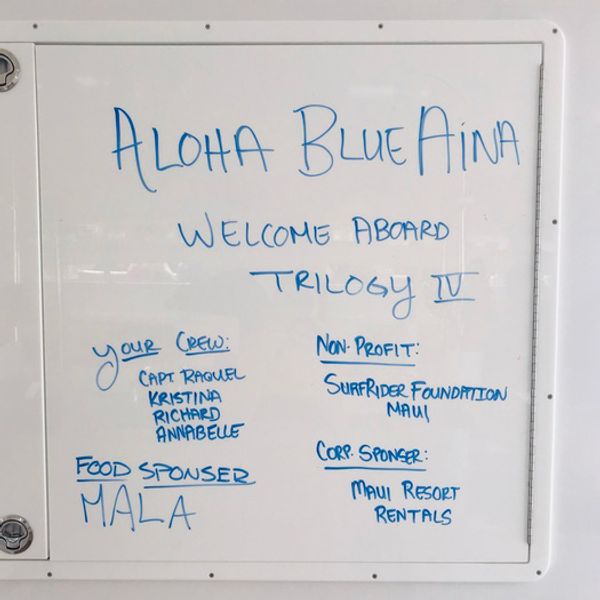 ALOHA BLUE AiNA
WELCOME ABOARD
TRILOGY IV
YOUR CREW:
CAPT RAQUEL
KRISTINA
RICHARD
ANNABELLE
FOOD SPONSER
MALA
NON-PROFIT:
SURFRIDER FOUNDATION
MAUI
CORP. SPONSER:
MAUI RESORT
RENTALS